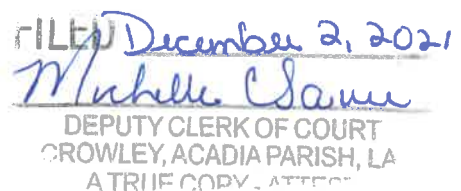 FILED December 2, 2021
Michelle
DEPUTY CLERK OF COURT
CROWLEY, ACADIA PARISH, LA
A TRUE COPY - ATTEST